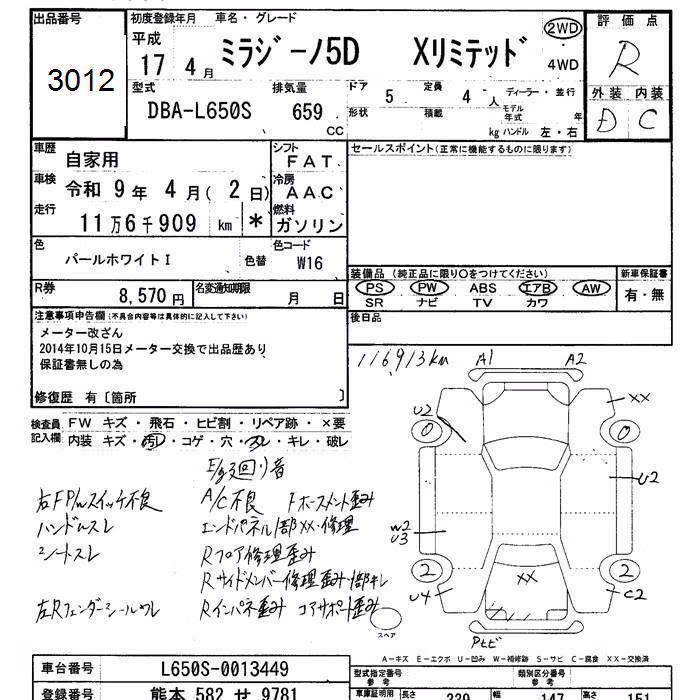 出品番号
3012
初度登録年月 車名・グレード
平成
17 4月 ミラジーノ5D Xリミテッド
2WD
・
4WD
評価点
R
外装 内装
D C
型式 排気量
DBA-L650S 659
CC
ドア 定員 ディーラー・並行
5 4 人
形状 積載 モデル年式 年
kg ハンドル 左・右
車歴 自家用
シフト FAT
車検 令和 9年 4月( 2日)
冷房 AAC
走行 11万6千909 km *
燃料 ガソリン
色 パールホワイトI 色替
色コード W16
R券 8,570円 名変通知期限 月 日
セールスポイント(正常に機能するものに限ります)
装備品(純正品に限り○をつけてください) 新車保証書
PS PW ABS エアB AW 有・無
SR ナビ TV カワ
後日品
注意事項申告欄(不具合内容等は具体的に記入して下さい)
メーター改ざん
2014年10月15日メーター交換で出品歴あり
保証書無しの為
修復歴 有〔箇所 〕
検査員記入欄
FW キズ・飛石・ヒビ割・リペア跡・×要
内装 キズ・汚レ・コゲ・穴・スレ・キレ・破レ
116,913km
A1 A2
U2 XX
0 0
U2
W2
U3
2 2
XX
U4 C2
スペア
Pヒビ
E/g廻り音
右FP/wスイッチ不良 A/C不良 Fホースメント歪み
ハンドルスレ エンドパネル1部XX・修理
シートスレ Rフロア修理歪み
Rサイドメンバー修理歪み・1部キレ
左Rフェンダーシールワレ Rインパネ歪み コアサポート歪み
A-キズ E-エクボ U-凹み W-補修跡 S-サビ C-腐食 XX-交換済
車台番号 L650S-0013449
登録番号 熊本 582 せ 9781
型式指定番号 類別区分番号
参考 参考
車庫証明用 長さ 339 幅 147 高さ 151